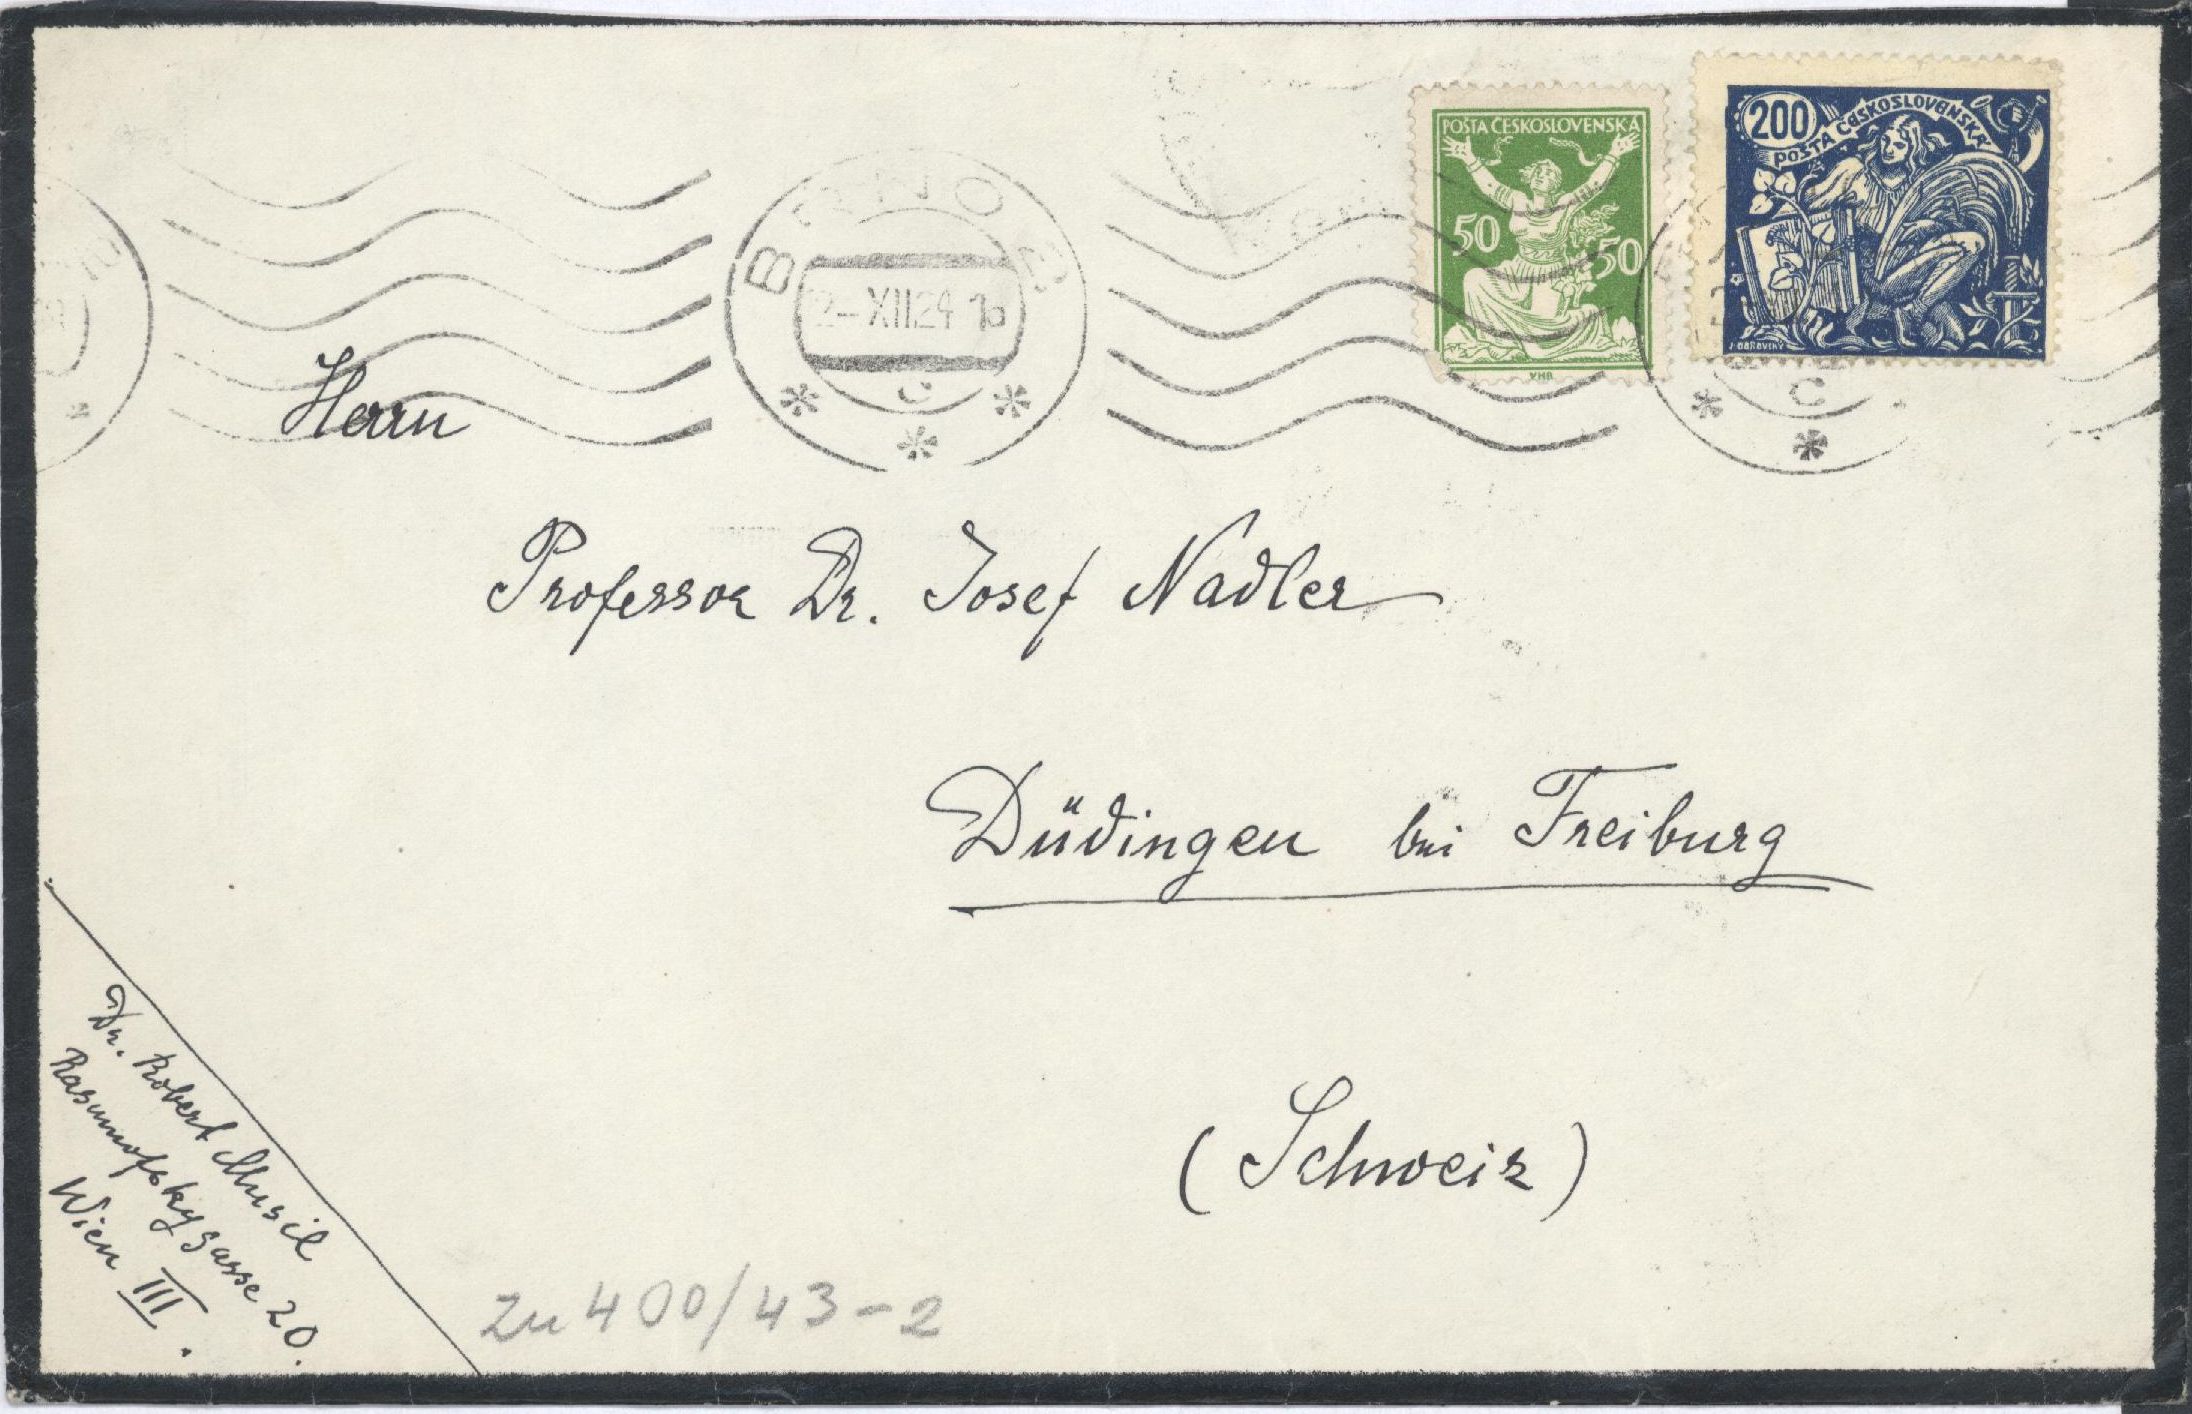 POŠTA ČESKOSLOVENSKÁ
50 50
200
POŠTA ČESKOSLOVENSKÁ
BRNO
2-XII24
C
C
Herrn
Professor Dr. Josef Nadler
Düdingen bei Freiburg
(Schweiz)
Dr. Robert Musil
Rasumofskygasse 20.
Wien III.
Zu 400/43-2